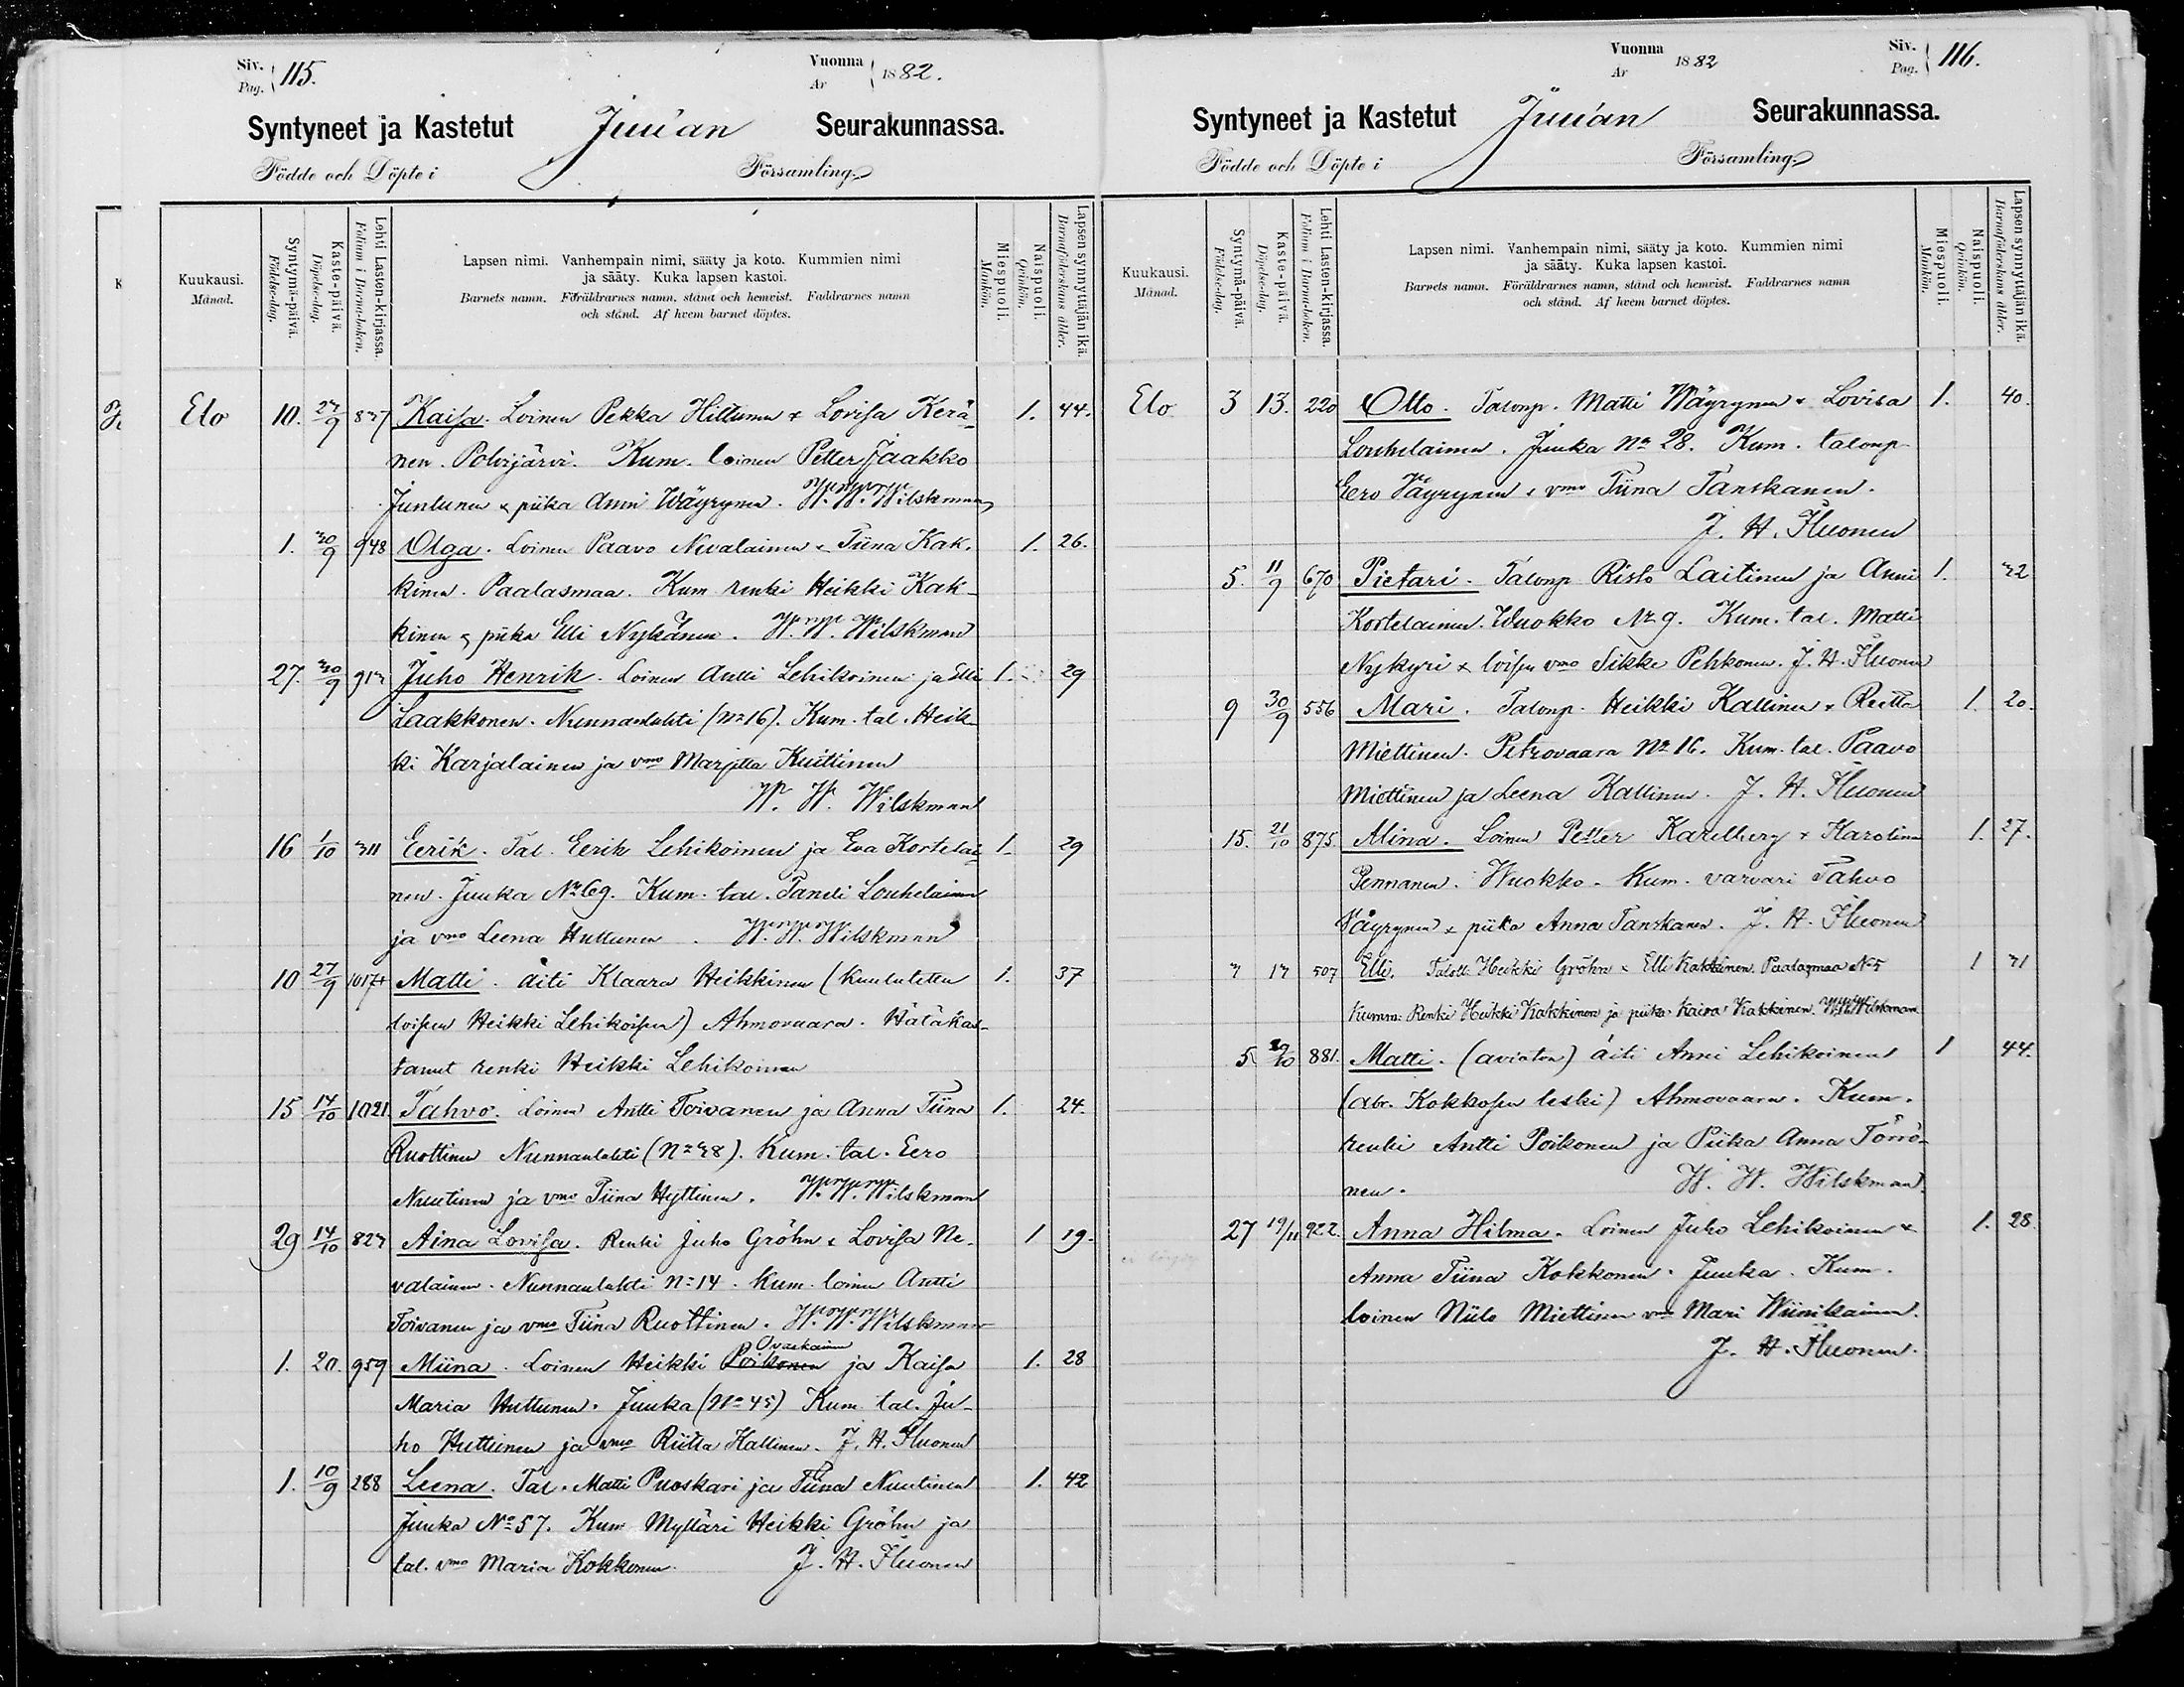 Siv. Pag. 115.
Vuonna År 1882.
Syntyneet ja Kastetut Juuan Seurakunnassa.
Födde och Döpte i Församling.
Kuukausi. Månad.
Syntymä-päivä. Födelse-dag.
Kaste-päivä. Döpelse-dag.
Lehti Lasten-kirjassa. Folium i Barna-boken.
Lapsen nimi. Vanhempain nimi, sääty ja koto. Kummien nimi
ja sääty. Kuka lapsen kastoi.
Barnets namn. Föräldrarnes namn, stånd och hemvist. Faddrarnes namn
och stånd. Af hvem barnet döptes.
Miespuoli. Mankön.
Naispuoli. Qvinkön.
Lapsen synnyttäjän ikä. Barnaföderskans ålder.
Elo 10. 27/9 837 Kaisa. Loinen Pekka Hiltunen & Lovisa Kerä- 1. 44.
nen. Polvijärvi. Kum. loinen Petter Jaakko
Juntunen & piika Anni Wäyrynen. W. W. Wilskman
1. 30/9 948 Olga. Loinen Paavo Nevalainen & Tiina Kak- 1. 26.
kinen. Paalasmaa. Kum renki Heikki Kak-
kinen & piika Elli Nykänen. W. W. Wilskman
27. 30/9 913 Juho Henrik. Loinen Antti Lehikoinen ja Elli 1. 29
Laakkonen. Nunnanlahti (No 16). Kum. tal. Heik-
ki Karjalainen ja vmo Marjetta Kuittinen
W. W. Wilskman
16 1/10 311 Eerik. Tal. Eerik Lehikoinen ja Eva Kortelai- 1. 29
nen. Juuka No 69. Kum. tal. Taneli Louhelainen
ja vmo Leena Huttunen. W. W. Wilskman
10 27/9 1017 Matti. äiti Klaara Heikkinen (kuulutettu 1. 37
loisen Heikki Lehikoisen) Ahmovaara. Hätäkas-
tanut renki Heikki Lehikoinen
15 14/10 1021. Tahvo. Loinen Antti Toivanen ja Anna Tiina 1. 24.
Ruottinen Nunnanlahti (No 38). Kum. tal. Eero
Nuutinen ja vmo Tiina Hyttinen. W. W. Wilskman
29 14/10 823 Aina Lovisa. Renki Juho Gröhn & Lovisa Ne- 1 19.
valainen. Nunnanlahti No 14. Kum. loinen Antti
Toivanen ja vmo Tiina Ruottinen. W. W. Wilskman
Ovaskainen
1. 20. 959 Miina. Loinen Heikki Poikonen ja Kaisa 1. 28
Maria Huttunen. Juuka (No 45) Kum tal. Ju-
ho Huttunen ja vmo Riitta Kallinen. J. H. Iluonen
1. 10/9 288 Leena. Tal. Matti Puoskari ja Tiina Nuutinen 1. 42
Juuka No 57. Kum Mylläri Heikki Gröhn ja
tal. vmo Maria Kokkonen. J. H. Iluonen
Vuonna År 1882
Siv. Pag. 116.
Syntyneet ja Kastetut Juuan Seurakunnassa.
Födde och Döpte i Församling.
Kuukausi. Månad.
Syntymä-päivä. Födelse-dag.
Kaste-päivä. Döpelse-dag.
Lehti Lasten-kirjassa. Folium i Barna-boken.
Lapsen nimi. Vanhempain nimi, sääty ja koto. Kummien nimi
ja sääty. Kuka lapsen kastoi.
Barnets namn. Föräldrarnes namn, stånd och hemvist. Faddrarnes namn
och stånd. Af hvem barnet döptes.
Miespuoli. Mankön.
Naispuoli. Qvinkön.
Lapsen synnyttäjän ikä. Barnaföderskans ålder.
Elo 3 13. 220 Otto. Talonp. Matti Wäyrynen & Lovisa 1. 40.
Louhelainen. Juuka No 28. Kum. talonp
Eero Väyrynen & vmo Tiina Tanskanen.
J. H. Iluonen
5. 11/9 670 Pietari. Talonp Risto Laitinen ja Anni 1. 32
Kortelainen. Wuokko No 9. Kum. tal. Matti
Nykyri & loisen vmo Sikke Pehkonen. J. H. Iluonen
9 30/9 556 Mari. Talonp. Heikki Kallinen & Reetta 1. 20.
Miettinen. Petrovaara No 16. Kum. tal. Paavo
Miettinen ja Leena Kallinen. J. H. Iluonen
15. 21/10 875. Alina. Loinen Petter Karelberg & Karolina 1. 27.
Pennanen. Wuokko. Kum. varvari Tahvo
Väyrynen & piika Anna Tanskanen. J. H. Iluonen
3 13 507 Elli. Talol. Heikki Gröhn & Elli Kakkinen. Paalasmaa No 5 1 31
Kumm. Renki Heikki Kakkinen ja piika Kaisa Kakkinen. W. W. Wilskman
5 29/10 881. Matti. (avioton) äiti Anni Lehikoinen 1 44.
(Abr. Kokkosen leski) Ahmovaara. Kum.
renki Antti Poikonen ja Piika Anna Törrö-
nen. W. W. Wilskman.
27 19/11 922. Anna Hilma. Loinen Juho Lehikoinen & 1. 28.
Anna Tiina Kokkonen. Juuka. Kum.
loinen Niilo Miettinen vmo Mari Wiinikainen.
J. H. Iluonen.